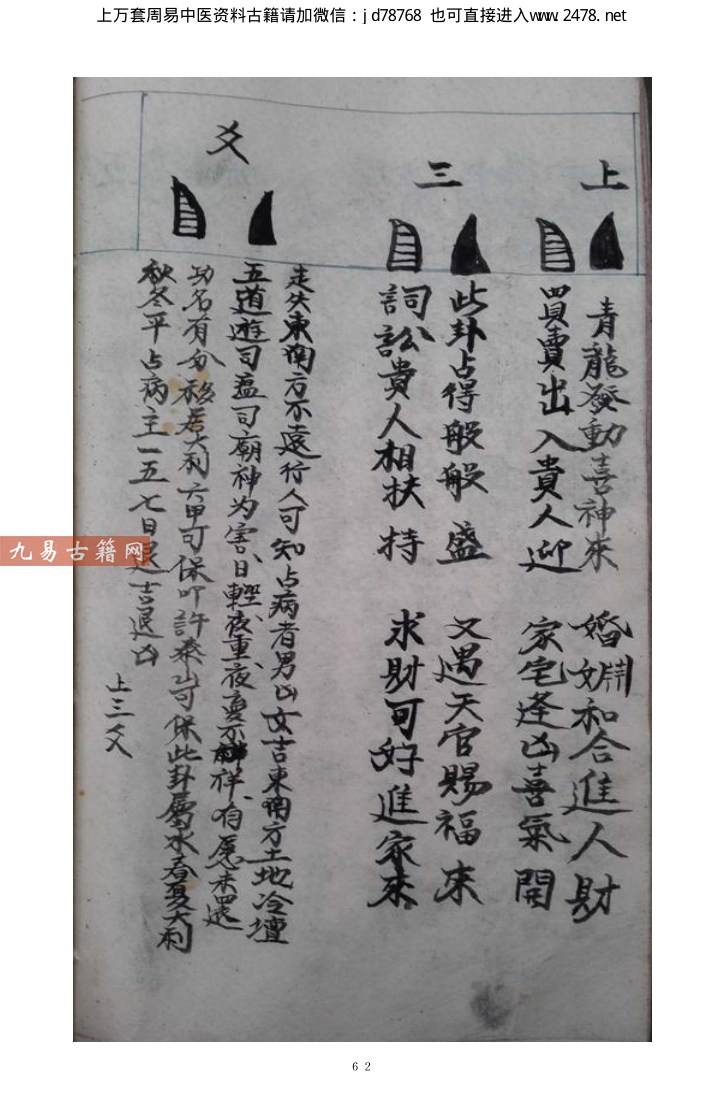 上万套周易中医资料古籍请加微信：jd78768 也可直接进入www.2478.net
上三爻
青龍發動喜神來 婚姻和合進人財
買賣出入貴人迎 家宅逢凶喜氣開
此卦占得般般盛 又遇天官賜福來
詞訟貴人相扶持 求財可好進家來
走失東南方不遠行人可知占病者男凶女吉東南方土地冷壇
五道遊司瘟司廟神为害日輕夜重夜夢不祥有愿未還
功名有分移居大利六甲可保叩許泰山可保此卦屬水春夏大利
秋冬平占病主一五七日退吉退凶
上三爻
九易古籍网
62